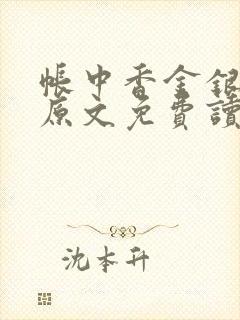 帳中香金銀
原文免費讀
沈本升